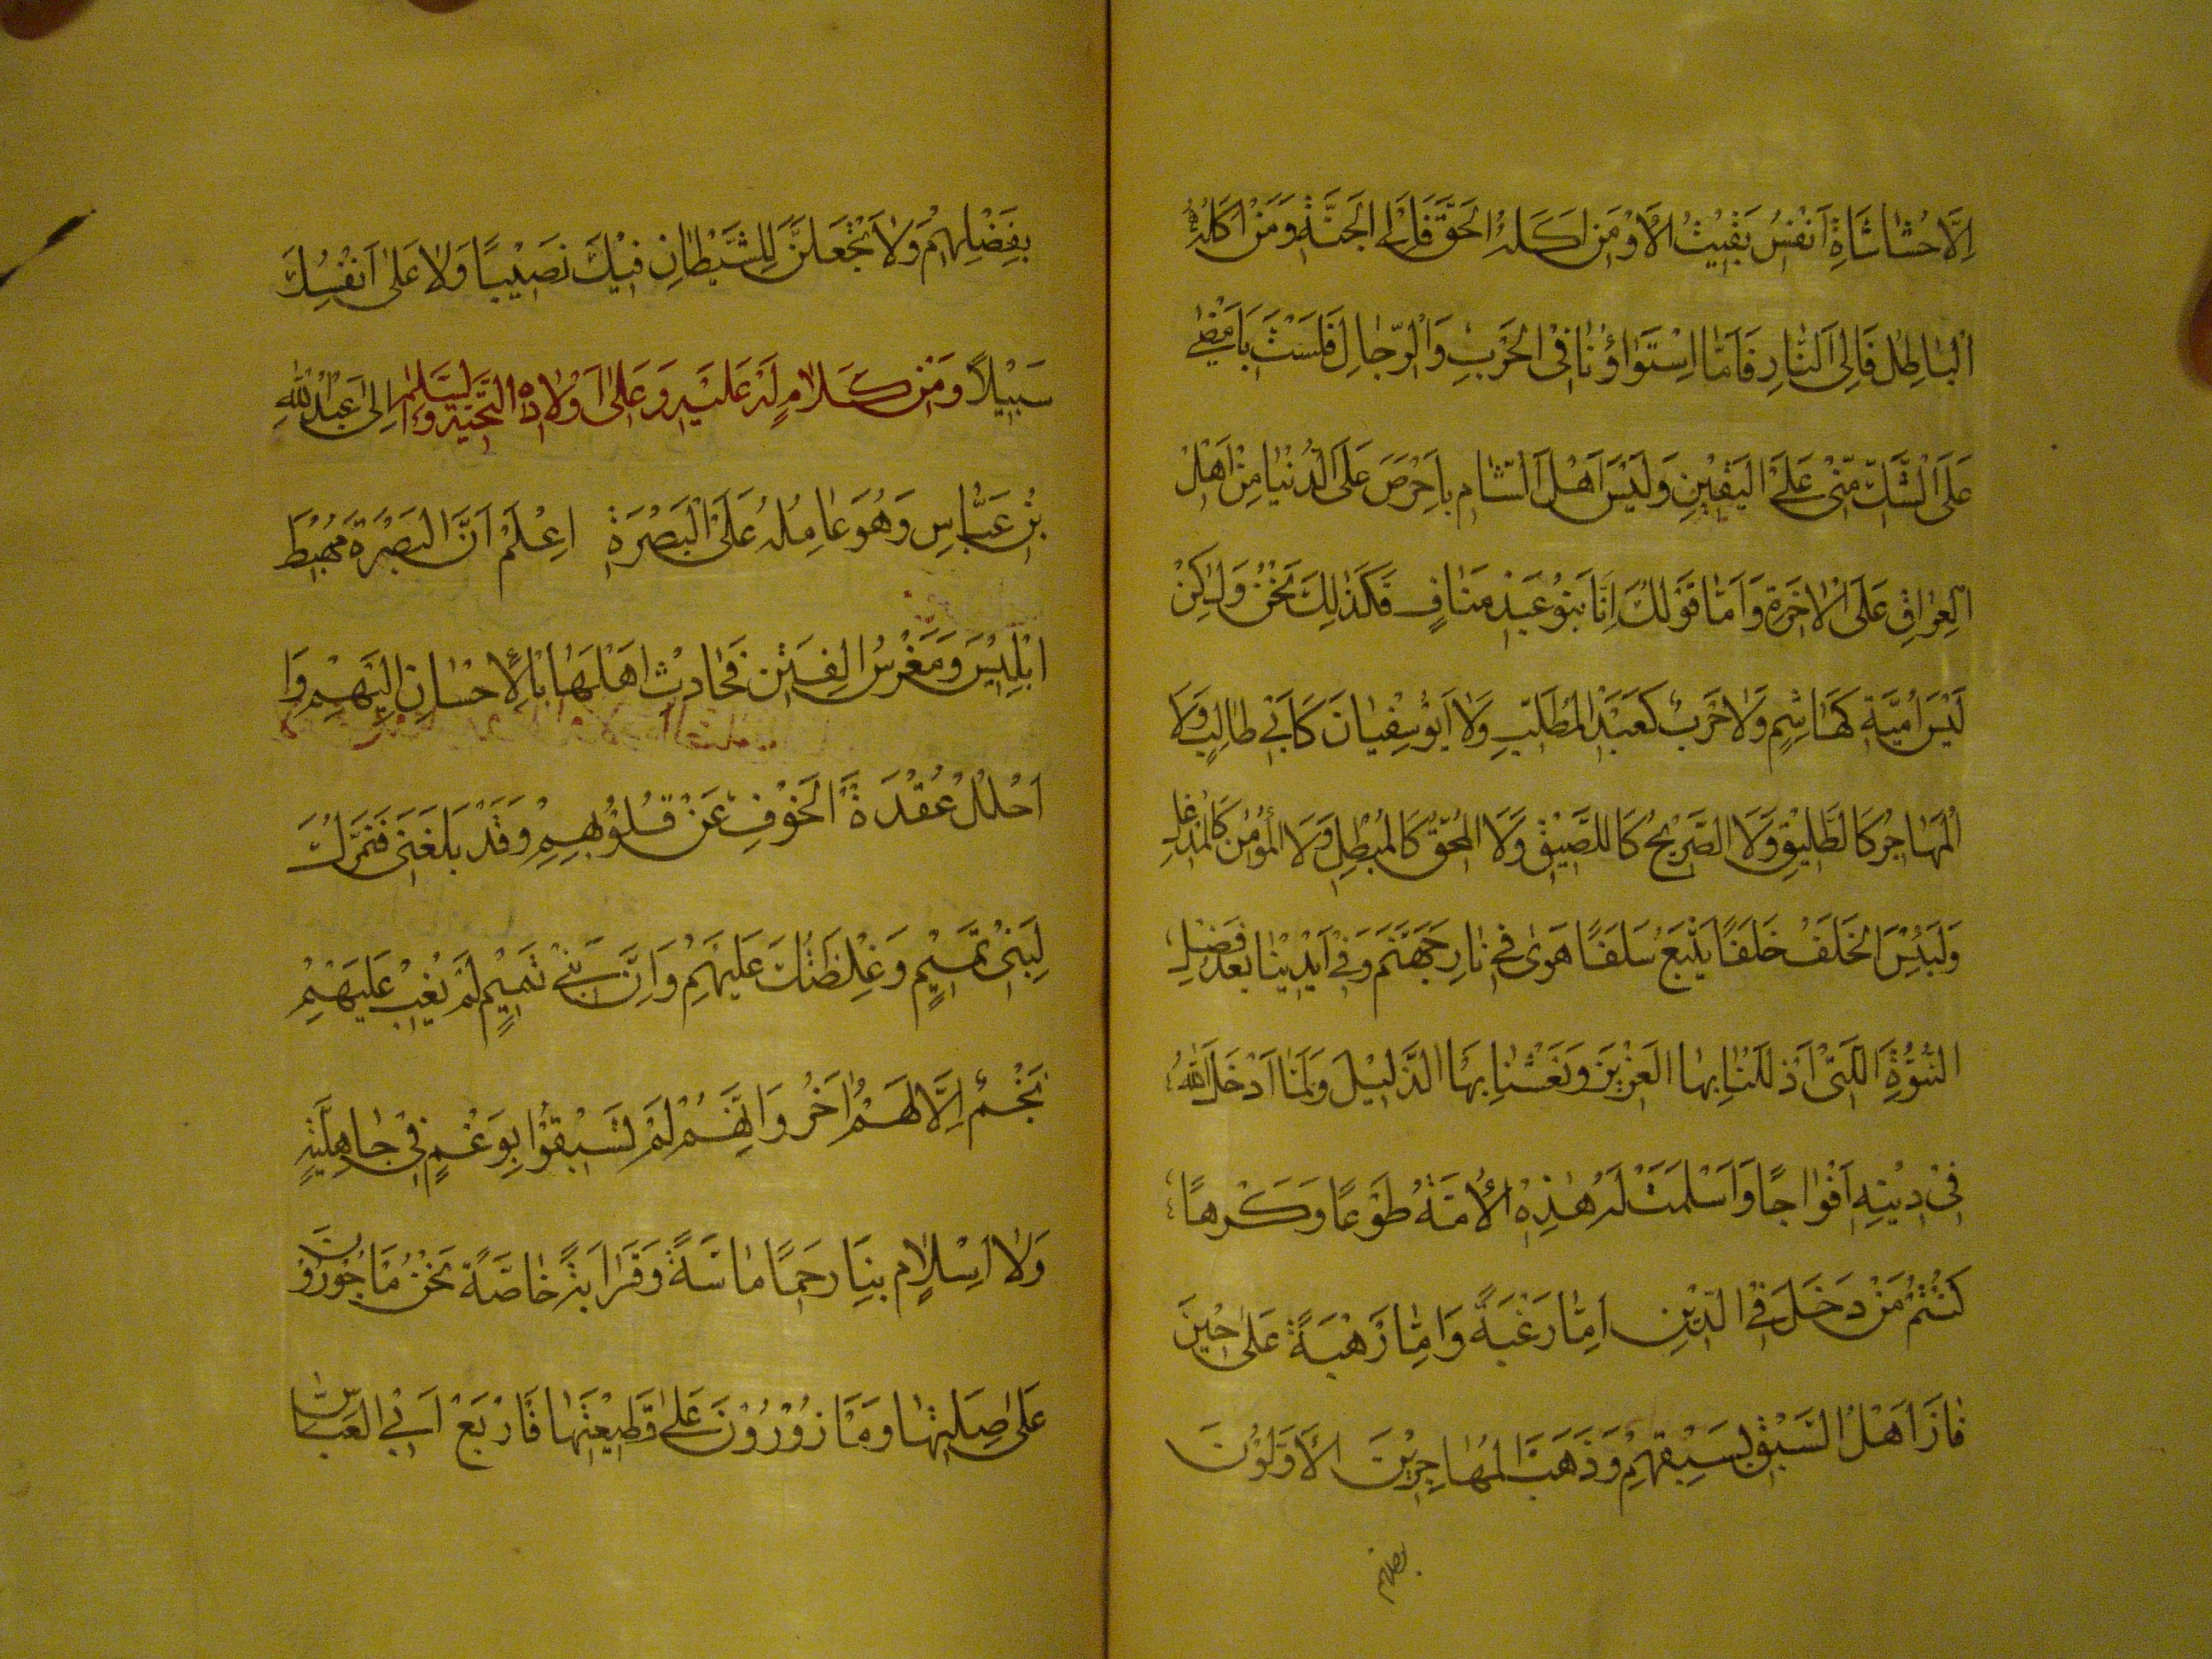 اِلَّا حُشَاشَاةِ اَنْفُسُ بَقِيَتُ اَلاَ وَمَنْ اَكَلَهُ الحَقَّ فَاِلَى الجَنَّةِ وَمَنْ اَكَلَهُ
البَاطِلُ فَاِلَى النَّارِ فَاَمَّا اِسْتَوَاؤُنَا فِى الحَرْبِ وَالرِّجَالِ فَلَسْتَ بِاَمْضٰى
عَلَى الشَّكِّ مِنِّىْ عَلَى اليَقِيْنِ وَلَيْسَ اَهْلُ الشَّامِ بِاَحْرَصَ عَلَى الدُّنْيَا مِنْ اَهْلِ
العِرَاقِ عَلَى الاٰخِرَةِ وَاَمَّا قَوْلُكَ اِنَّا بَنُوْ عَبْدِ مَنَافٍ فَكَذٰلِكَ نَحْنُ وَلٰكِنْ
لَيْسَ اُمَيَّةِ كَهَاشِمِ وَلاَ حَرْبُ كَعَبْدِ المُطَّلِبِ وَلاَ اَبُوْ سُفْيَانَ كَاَبِيْ طَالِبٍ وَلاَ
المُهَاجِرُ كَالطَّلِيْقِ وَلاَ الصَّرِيْحُ كَاللَّصِيْقِ وَلاَ المُحِقُّ كَالمُبْطِلِ وَلاَ المُؤْمِنُ كَالمُدْغِلِ
وَلَبِئْسَ الخَلَفُ خَلَفًا يَتْبَعُ سَلَفًا هَوٰى فِىْ نَارِ جَهَنَّمَ وَفِىْ اَيْدِيْنَا بَعْدُ فَضْلِ
النُّبُوَّةِ الَّتِىْ اَذْلَلْنَا بِهَا العَزِيْزَ وَنَعَشْنَا بِهَا الذَّلِيْلَ وَلَمَّا اَدْخَلَ اللّٰهُ
فِىْ دِيْنِهِ اَفْوَاجًا وَاَسْلَمَتْ لَهُ هٰذِهِ الاُمَّةُ طَوْعًا وَكَرْهًا
كُنْتُمْ مَنْ دَخَلَ فِى الدِّيْنِ اِمَّا رَغْبَةً وَاِمَّا رَهْبَةً عَلَى حِيْنَ
فَازَ اَهْلُ السَّبْقِ بِسَبْقِهِمْ وَذَهَبَ المُهَاجِرِيْنَ الاَوَّلُوْنَ
بفضلهم
بِفَضْلِهِمْ وَلاَ تَجْعَلَنَّ لِلشَّيْطَانِ فِيْكَ نَصِيْبًا وَلاَ عَلٰى اَنْفُسِكَ
سَبِيْلاً وَمِنْ كَلاَمٍ لَهُ عَلَيْهِ وَعَلٰى اَوْلاَدِهِ التَّحِيَّةُ وَالتَّسْلِيْمُ اِلٰى عَبْدِ اللّٰهِ
بْنِ عَبَّاسِ وَهُوَ عَامِلُهُ عَلَى الْبَصْرَةِ اِعْلَمْ اَنَّ البَصْرَةَ مَهْبِطُ
اِبْلِيْسَ وَمَغْرِسُ الفِتَنِ فَحَادِثْ اَهْلَهَا بِالْاِحْسَانِ اِلَيْهِمْ وَا
اَحْلُلْ عُقْدَةَ الخَوْفِ عَنْ قُلُوْبِهِمِ وَقَدْ بَلَغَنِىْ تَنَمُّرُكَ
لِبَنِىْ تَمِيْمٍ وَغِلْظَتُكَ عَلَيْهِمْ وَاِنَّ بَنِىْ تَمِيْمٍ لَمْ يَغِبْ عَلَيْهِمْ
نَجْمُ اِلَّا لَهُمْ اٰخَرُ وَاِنَّهُمْ لَمْ يُسْبَقُوْا بِوَغْمٍ فِىْ جَاهِلِيَّةٍ
وَلاَ اِسْلاَمٍ بِنَا رَحِمًا مَاسَّةً وَقَرَابَةً خَاصَّةً نَحْنُ مَاجُوْرُوْنَ
عَلٰى صِلَتِهَا وَمَازُوْرُوْنَ عَلٰى قَطِيْعَتِهَا فَارْبَعْ اَبِى العَبَّاسِ